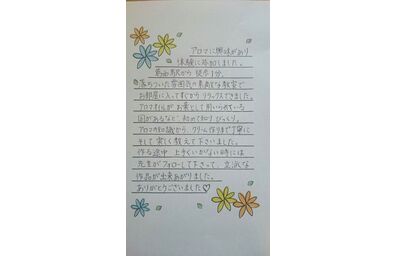 アロマに興味があり
体験に参加しました。
葛西駅から徒歩1分、
落ちついた雰囲気の素敵な教室で
お部屋に入ってすぐからリラックスできました。
アロマオイルがお薬として用いられている
国があるなど、初めて知り びっくり。
アロマの知識から、クリーム作りまで丁寧に
そして楽しく教えて下さいました。
作る途中 上手くいかない時には
先生がフォローして下さって、立派な
作品が出来あがりました。
ありがとうございました♡